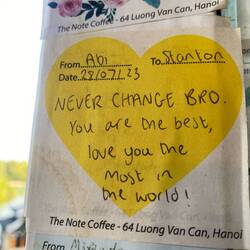 The Note Coffee - 64 Luong Van Can, Hanoi
From Abi To Stanton
Date 28/07/23
NEVER CHANGE BRO.
You are the best,
love you the
most in
the world!
The Note Coffee - 64 Luong Van Can, Hanoi
From